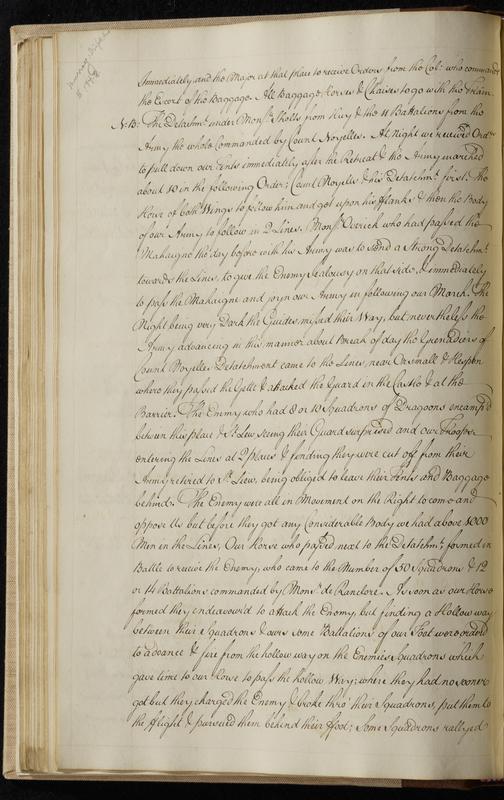 Immediately, and the Major at that place to receive Orders from the Col: who commands
the Escort of the Baggage. All Baggage Horses & Chaises to go with the Train.
N:B: The Detachmt. under Monsr. Sholts from Huy & the 11 Battalions from the
Army the whole Commanded by Count Noyelles. At night we received Ordrs
to pull down our Tents immediately after the Retreat & the Army marched
about 10 in the following Order; Count Noyelles & his Detatchmt. first. The
Horse of both Wings to follow him and get upon his Flanks & then the Body
of our Army to follow in 2 Lines. Monsr. Overick who had passed the
Mahaigne the day before with his Army was to send a Strong Detatchmt.
towards the Lines, to give the Enemy Jealousy on that side, & immediately
to pass the Mahaigne and joyn our Army in following our March. The
Night being very Dark the Guides missed their Way, but nevertheless the
Army advancing in this manner about break of day the Grenadiers of
Count Noyelles Detatchment came to the Lines, near Orsmall & Hespen
where they passed the Gette & attacked the Guard in the Castle & at the
Barrier. The Enemy who had 8 or 10 Squadrons of Dragoons encamp'd
between this place & St. Lew, seeing their Guard surprised and our Troops
entering the Lines at 2 places & finding they were cut off from their
Army retired to St. Liew, being obliged to leave their Tents and Baggage
behind. The Enemy were all in Movement on the Right to come and
oppose Us but before they got any Considerable Body we had above 8000
Men in the Lines, Our Horse who passed next to the Detatchmt. formed in
Battle to receive the Enemy, who came to the Number of 50 Squadrons & 12
or 14 Battalions commanded by Monsr. de Ranclore. As soon as our Horse
formed they endeavour'd to attack the Enemy, but finding a Hollow way
between their Squadrons & ours some Battalions of our Foot were orderd
to advance & fire from the hollow way on the Enemies Squadrons which
gave time to our Horse to pass the hollow Way; where they had no sooner
got but they charged the Enemy & broke thro' their Squadrons, put them to
the Flight & pursued them behind their Foot; Some Squadrons rallyed